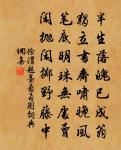 半生落魄已成翁
独立書齋啸晚風
筆底明珠無處賣
閑抛閑擲野藤中
徐渭題墨葡萄圖詞典
網集